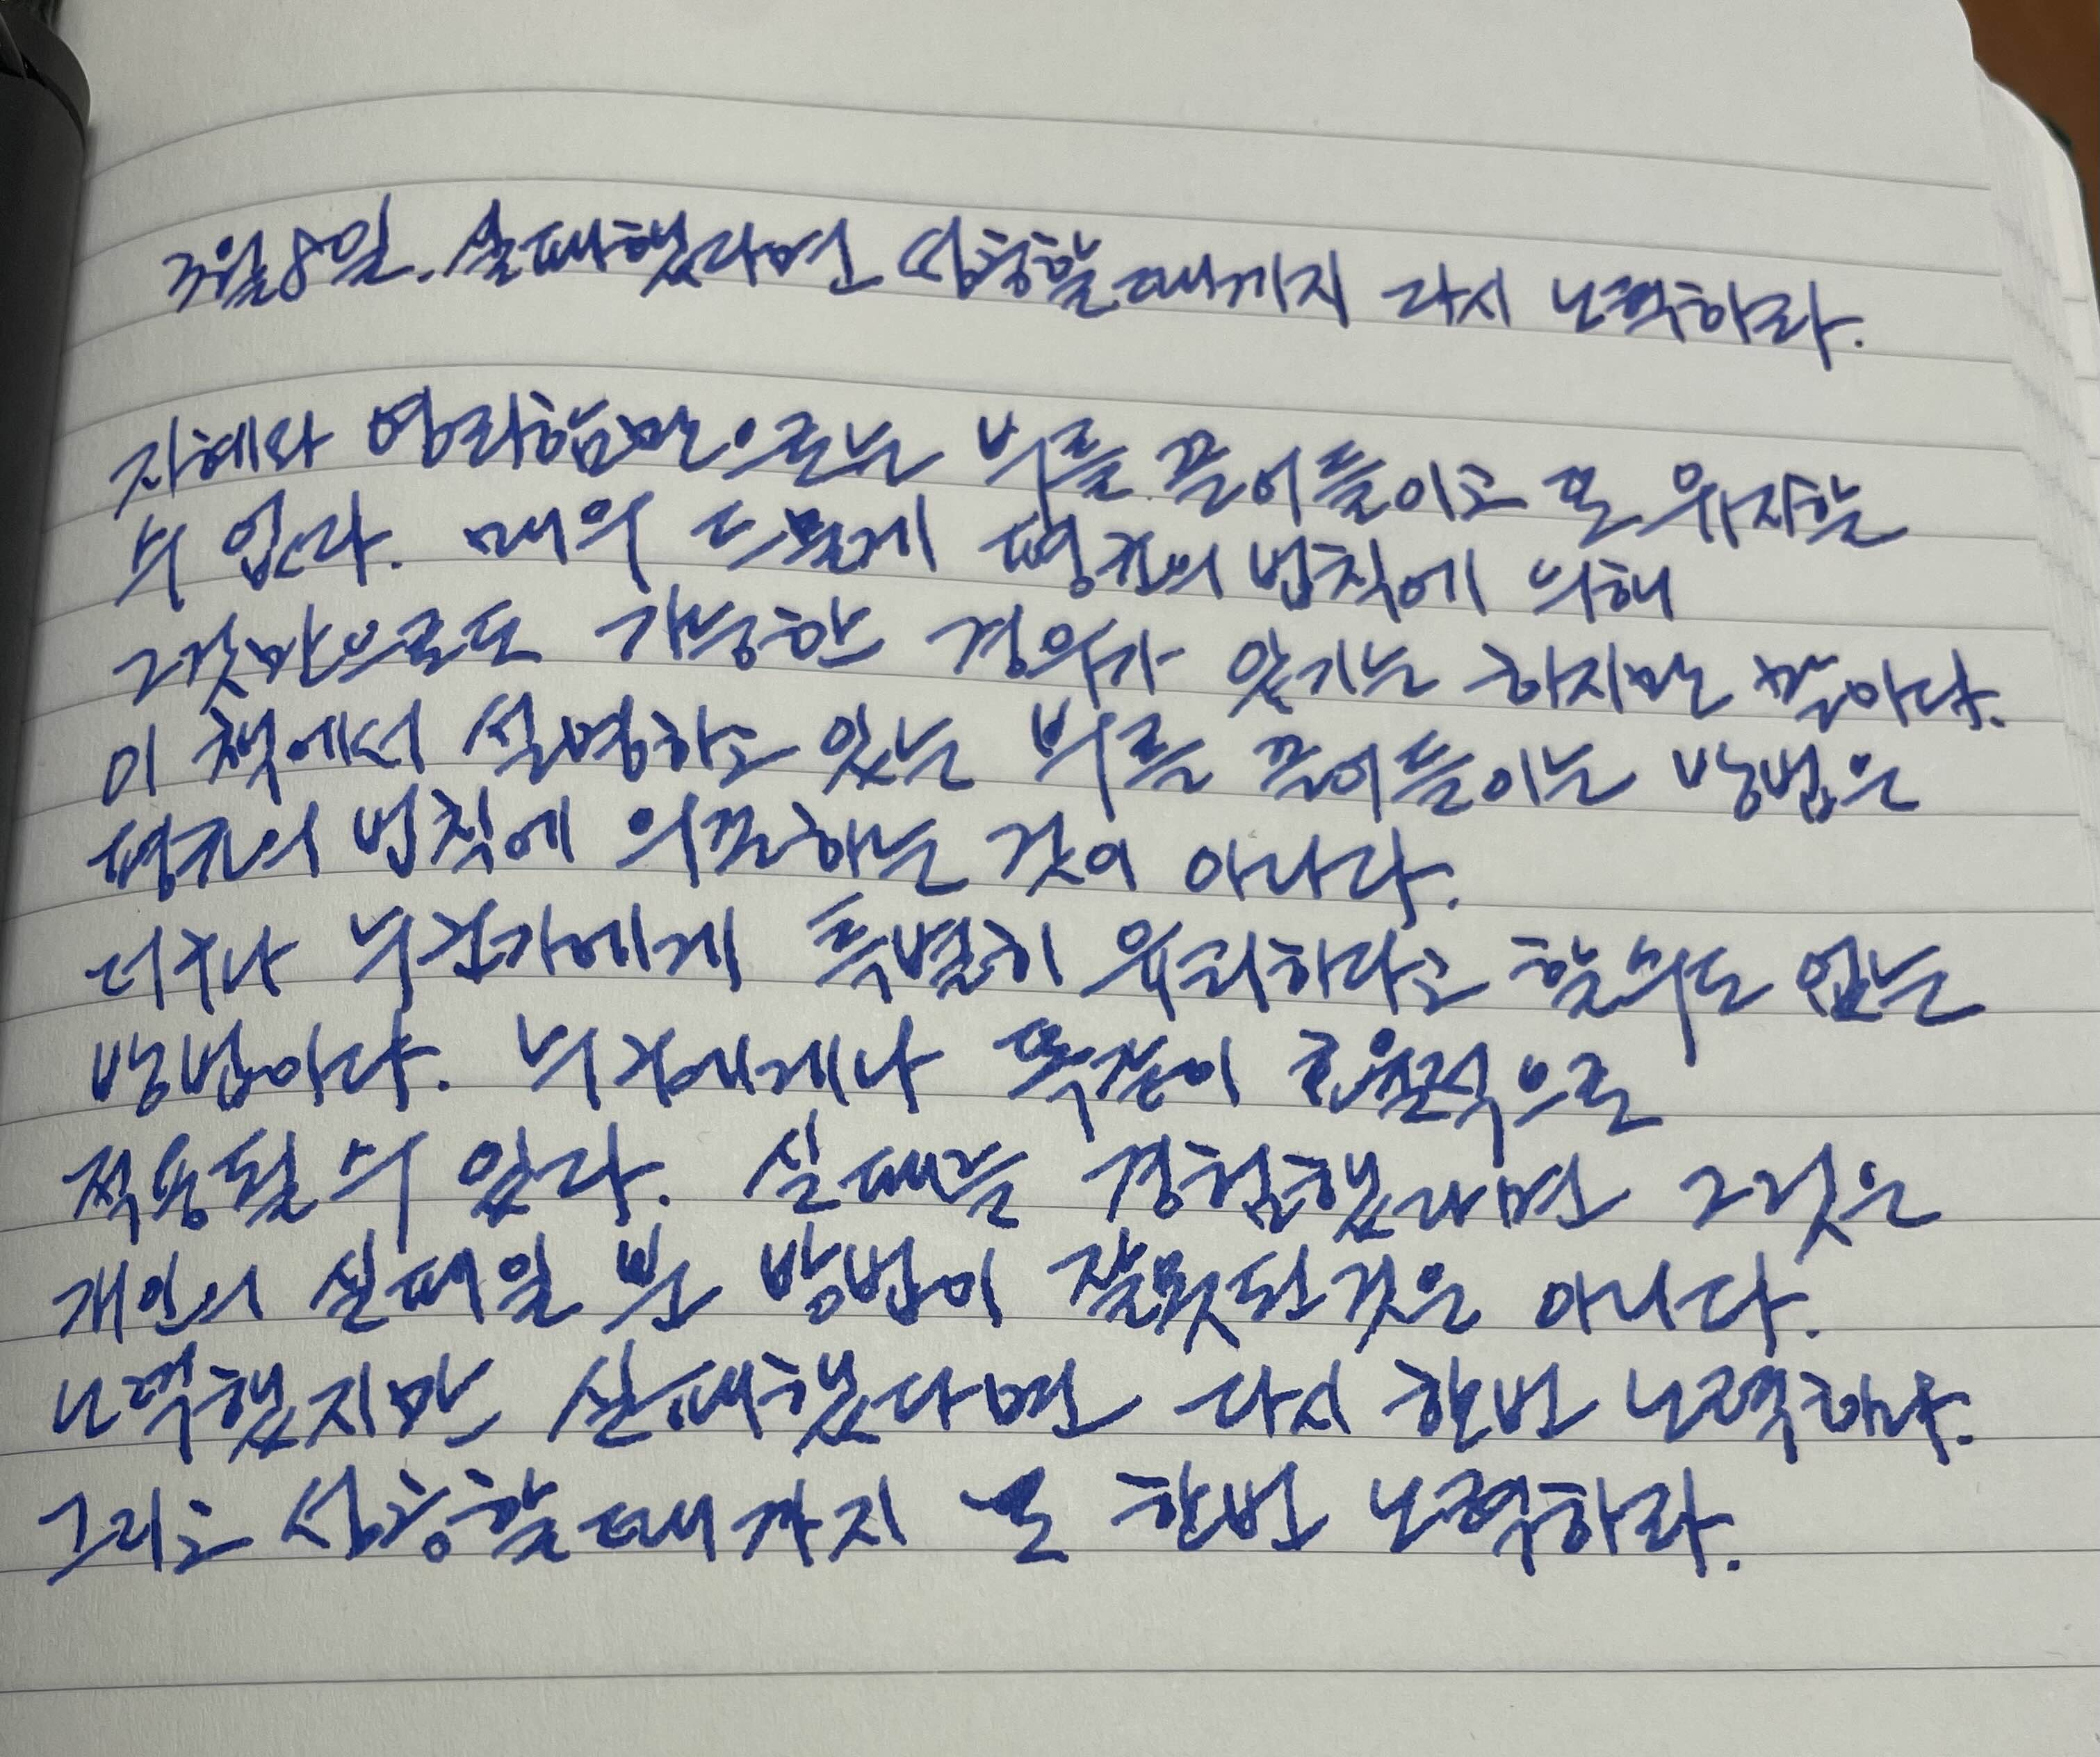 3월8일. 실패했다면 성공할때까지 다시 노력하라.
지혜와 영리함만으로는 부를 끌어들이고 또 유지할
수 없다. 매우 드물게 평균의 법칙에 의해
그것만으로도 가능한 경우가 있기는 하지만 말이다.
이 책에서 설명하고 있는 부를 끌어들이는 방법은
평균의 법칙에 의존하는 것이 아니다.
더구나 누군가에게 특별히 유리하다고 할수도 없는
방법이다. 누구에게나 똑같이 효율적으로
적용될 수 있다. 실패를 경험했다면 그것은
개인의 실패일 뿐 방법이 잘못된것은 아니다.
노력했지만 실패했다면 다시 한번 노력하라.
그리고 성공할때까지 또 한번 노력하라.